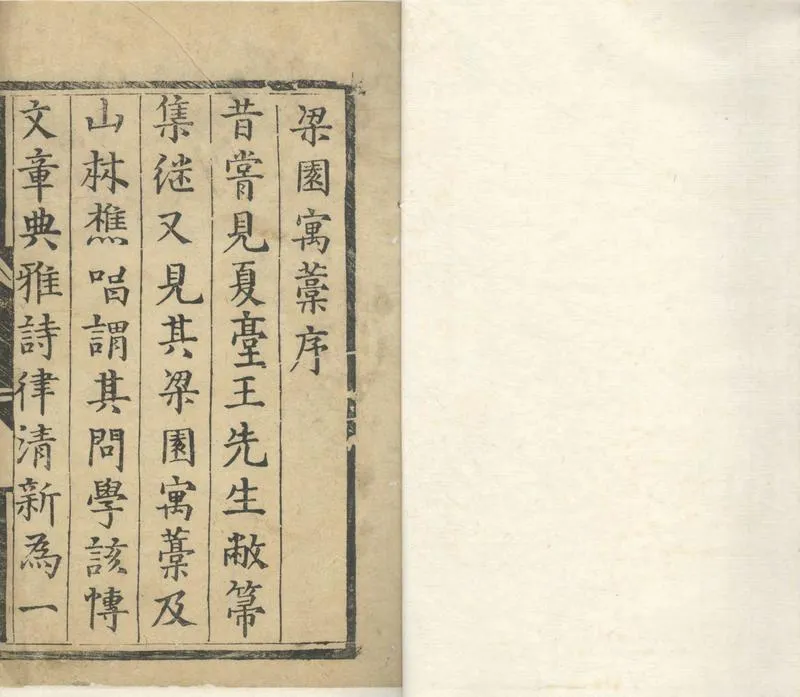 梁園寓藁序
昔嘗見夏臺王先生敝箒
集継又見其梁園寓藁及
山林樵唱謂其問學該愽
文章典雅詩律清新為一